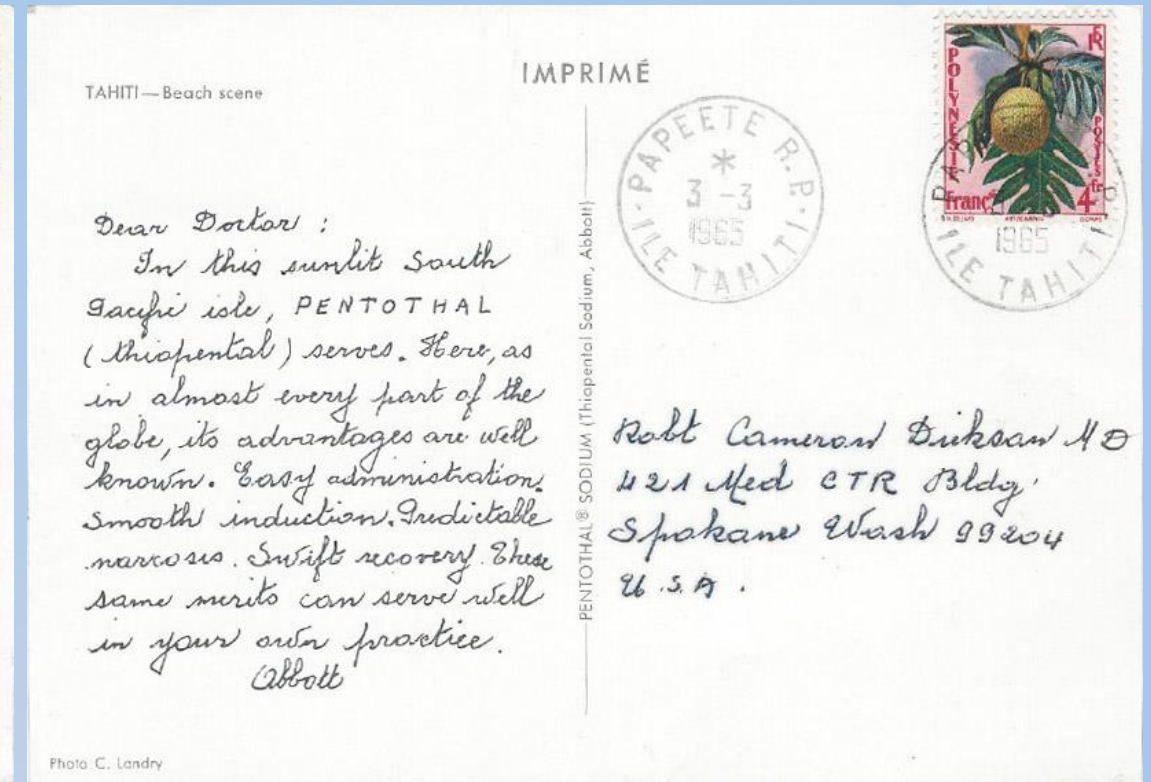 IMPRIMÉ
TAHITI—Beach scene
Dear Doctor :
In this sunlit South
Pacific isle, PENTOTHAL
(thiopental) serves. Here, as
in almost every part of the
globe, its advantages are well
known. Easy administration.
Smooth induction. Predictable
narcosis. Swift recovery. These
same merits can serve well
in your own practice.
Abbott
Photo C. Landry
PENTOTHAL® SODIUM (Thiopental Sodium, Abbott)
PAPEETE R.P.
*
3 -3
1965
ILE TAHITI
POLYNESIE
RF
POSTES
Franc 4 fr
1965
ILE TAHITI
Robt Cameron Dickson MD
421 Med CTR Bldg
Spokane Wash 99204
U.S.A.